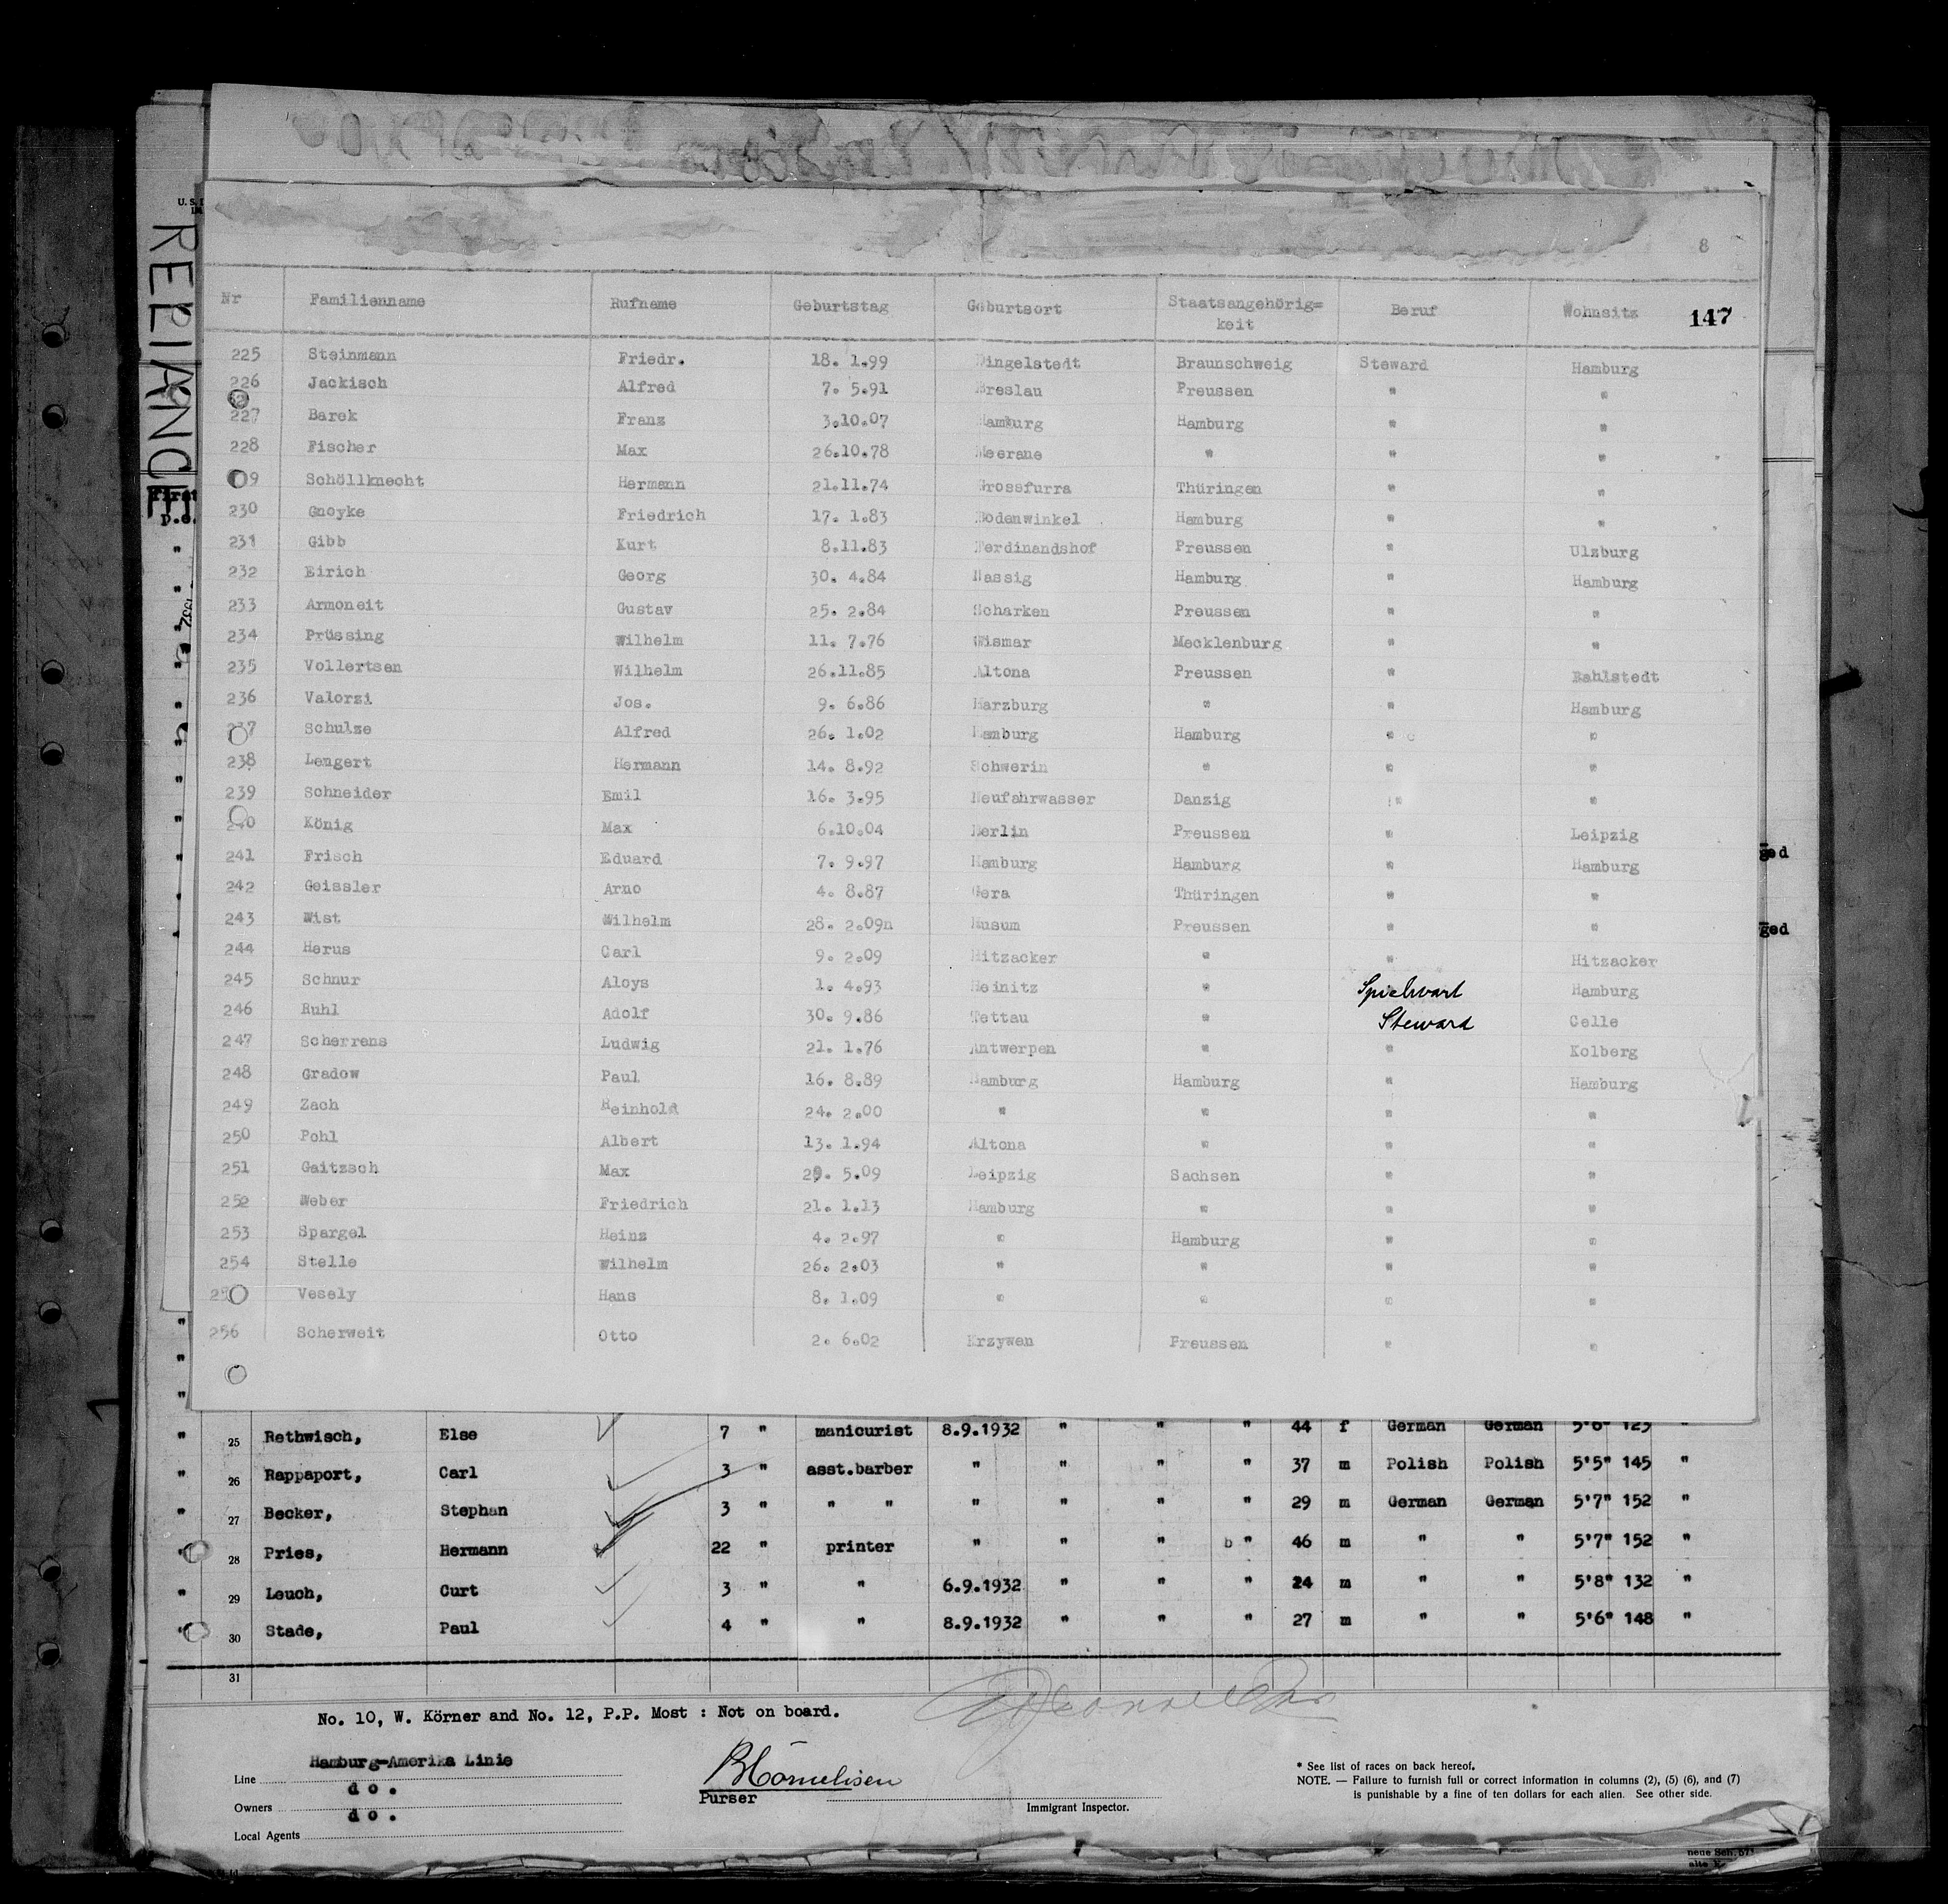 8
U. S.
RELIANCE
Nr Familienname Rufname Geburtstag Geburtsort Staatsangehörig= keit Beruf Wohnsitz 147
225 Steinmann Friedr. 18. 1.99 Dingelstedt Braunschweig Steward Hamburg
226 Jackisch Alfred 7. 5.91 Breslau Preussen " "
227 Barek Franz 3.10.07 Hamburg Hamburg " "
228 Fischer Max 26.10.78 Meerane " " "
9 Schöllknecht Hermann 21.11.74 Grossfurra Thüringen " "
230 Gnoyke Friedrich 17. 1.83 Bodenwinkel Hamburg " "
231 Gibb Kurt 8.11.83 Ferdinandshof Preussen " Ulzburg
232 Eirich Georg 30. 4.84 Nassig Hamburg " Hamburg
233 Armoneit Gustav 25. 2.84 Scharken Preussen " "
234 Prüssing Wilhelm 11. 7.76 Wismar Mecklenburg " "
235 Vollertsen Wilhelm 26.11.85 Altona Preussen " Rahlstedt
236 Valorzi Jos. 9. 6.86 Harzburg " " Hamburg
237 Schulze Alfred 26. 1.02 Hamburg Hamburg " "
238 Lengert Hermann 14. 8.92 Schwerin " " "
239 Schneider Emil 16. 3.95 Neufahrwasser Danzig " "
240 König Max 6.10.04 Berlin Preussen " Leipzig
241 Frisch Eduard 7. 9.97 Hamburg Hamburg " Hamburg
242 Geissler Arno 4. 8.87 Gera Thüringen " "
243 Wist Wilhelm 28. 2.09n Husum Preussen " "
244 Herus Carl 9. 2.09 Hitzacker " " Hitzacker
245 Schnur Aloys 1. 4.93 Heinitz " Spielwart Hamburg
246 Ruhl Adolf 30. 9.86 Tettau " Steward Celle
247 Scherrens Ludwig 21. 1.76 Antwerpen " " Kolberg
248 Gradow Paul 16. 8.89 Hamburg Hamburg " Hamburg
249 Zach Reinhold 24. 2.00 " " " "
250 Pohl Albert 13. 1.94 Altona " " "
251 Gaitzsch Max 29. 5.09 Leipzig Sachsen " "
252 Weber Friedrich 21. 1.13 Hamburg " " "
253 Spargel Heinz 4. 2.97 " Hamburg " "
254 Stelle Wilhelm 26. 2.03 " " " "
25 Vesely Hans 8. 1.09 " " " "
256 Scherweit Otto 2. 6.02 Krzywen Preussen " "
" 25 Rethwisch, Else 7 " manicurist 8.9.1932 " " " 44 f German German 5'6" 125 "
" 26 Rappaport, Carl 3 " asst.barber " " " " 37 m Polish Polish 5'5" 145 "
" 27 Becker, Stephan 3 " " " " " " " 29 m German German 5'7" 152 "
" 28 Pries, Hermann 22 " printer " " " b " 46 m " " 5'7" 152 "
" 29 Leuch, Curt 3 " " 6.9.1932 " " " 24 m " " 5'8" 132 "
" 30 Stade, Paul 4 " " 8.9.1932 " " " 27 m " " 5'6" 148 "
31
No. 10, W. Körner and No. 12, P.P. Most : Not on board.
Line Hamburg-Amerika Linie
Owners d o .
Local Agents d o .
Purser
Immigrant Inspector.
* See list of races on back hereof.
NOTE. — Failure to furnish full or correct information in columns (2), (5) (6), and (7)
is punishable by a fine of ten dollars for each alien. See other side.